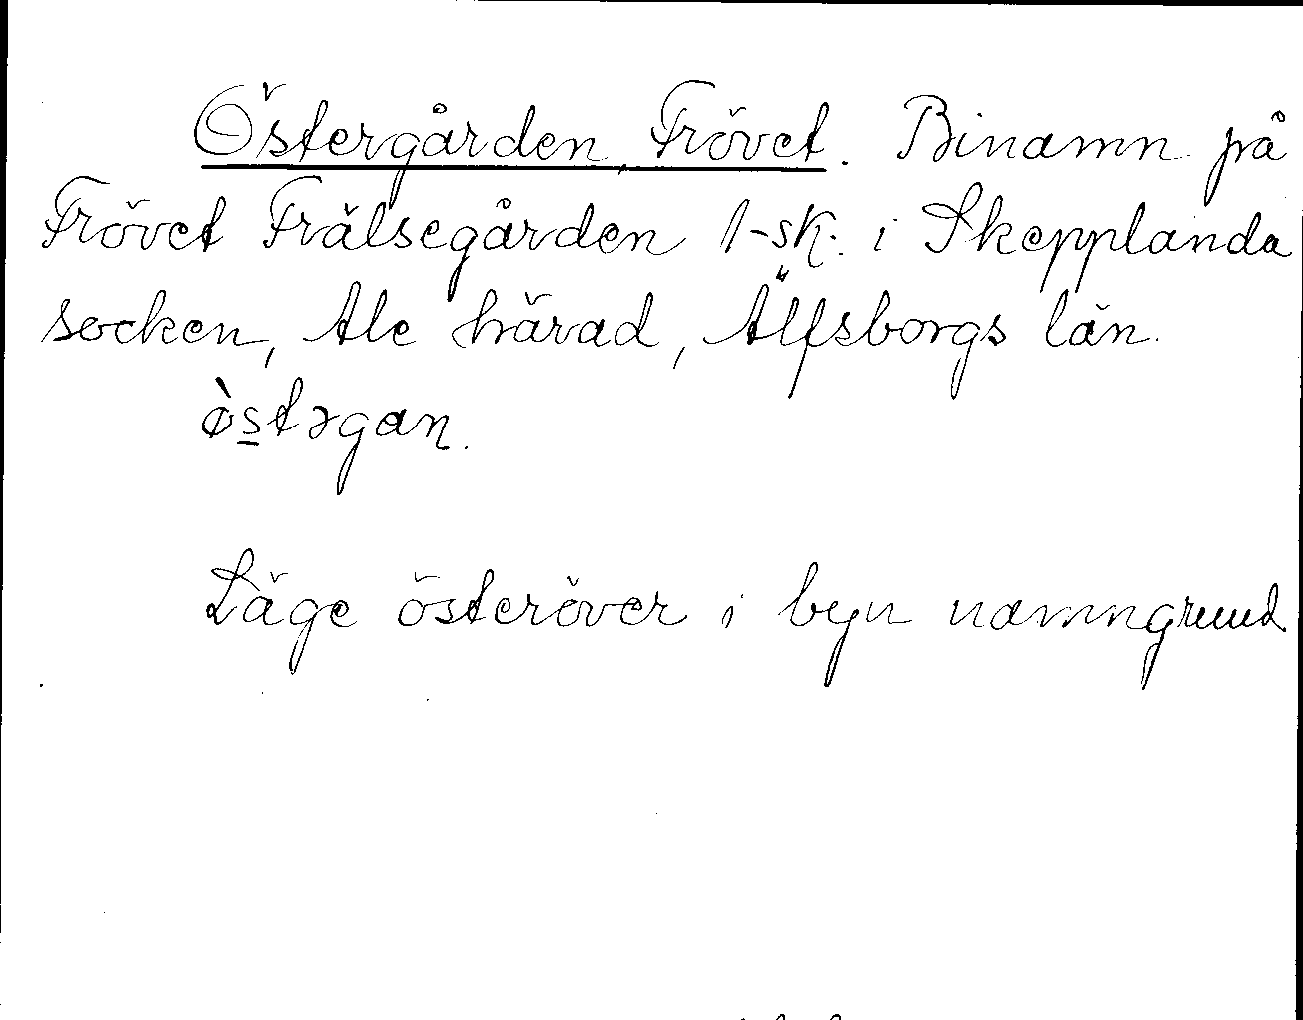 Östergården, Frövet. Binamn på
Frövet Frälsegården 1-sk. i Skepplanda
socken, Ale härad, Älfsborgs län.
ø̀s̲təgaɳ.
Läge österöver i byn namngrund